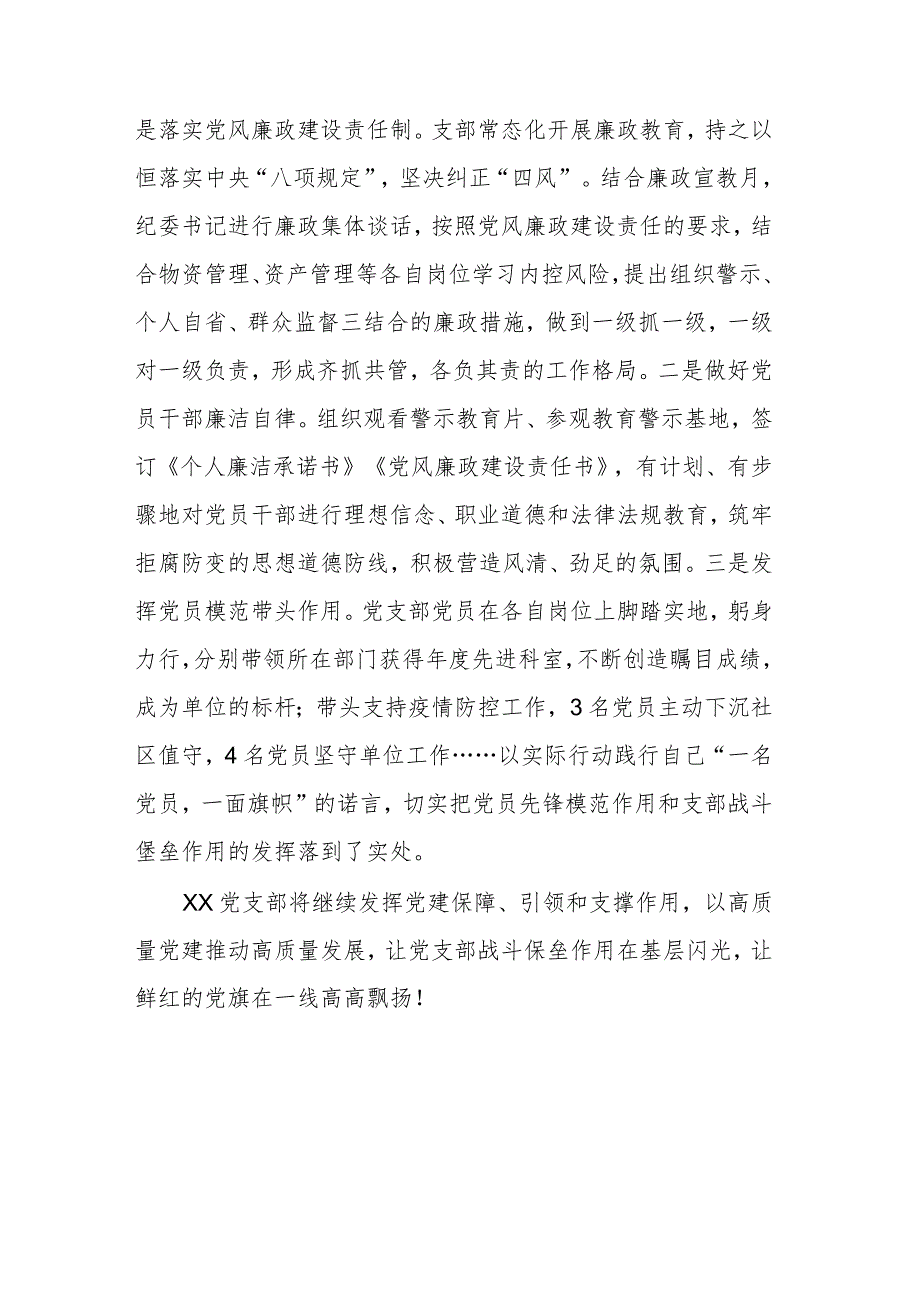 是落实党风廉政建设责任制。支部常态化开展廉政教育，持之以
恒落实中央“八项规定”，坚决纠正“四风”。结合廉政宣教月，
纪委书记进行廉政集体谈话，按照党风廉政建设责任的要求，结
合物资管理、资产管理等各自岗位学习内控风险，提出组织警示、
个人自省、群众监督三结合的廉政措施，做到一级抓一级，一级
对一级负责，形成齐抓共管，各负其责的工作格局。二是做好党
员干部廉洁自律。组织观看警示教育片、参观教育警示基地，签
订《个人廉洁承诺书》《党风廉政建设责任书》，有计划、有步
骤地对党员干部进行理想信念、职业道德和法律法规教育，筑牢
拒腐防变的思想道德防线，积极营造风清、劲足的氛围。三是发
挥党员模范带头作用。党支部党员在各自岗位上脚踏实地，躬身
力行，分别带领所在部门获得年度先进科室，不断创造瞩目成绩，
成为单位的标杆；带头支持疫情防控工作，3名党员主动下沉社
区值守，4名党员坚守单位工作……以实际行动践行自己“一名
党员，一面旗帜”的诺言，切实把党员先锋模范作用和支部战斗
堡垒作用的发挥落到了实处。
XX党支部将继续发挥党建保障、引领和支撑作用，以高质
量党建推动高质量发展，让党支部战斗保垒作用在基层闪光，让
鲜红的党旗在一线高高飘扬！